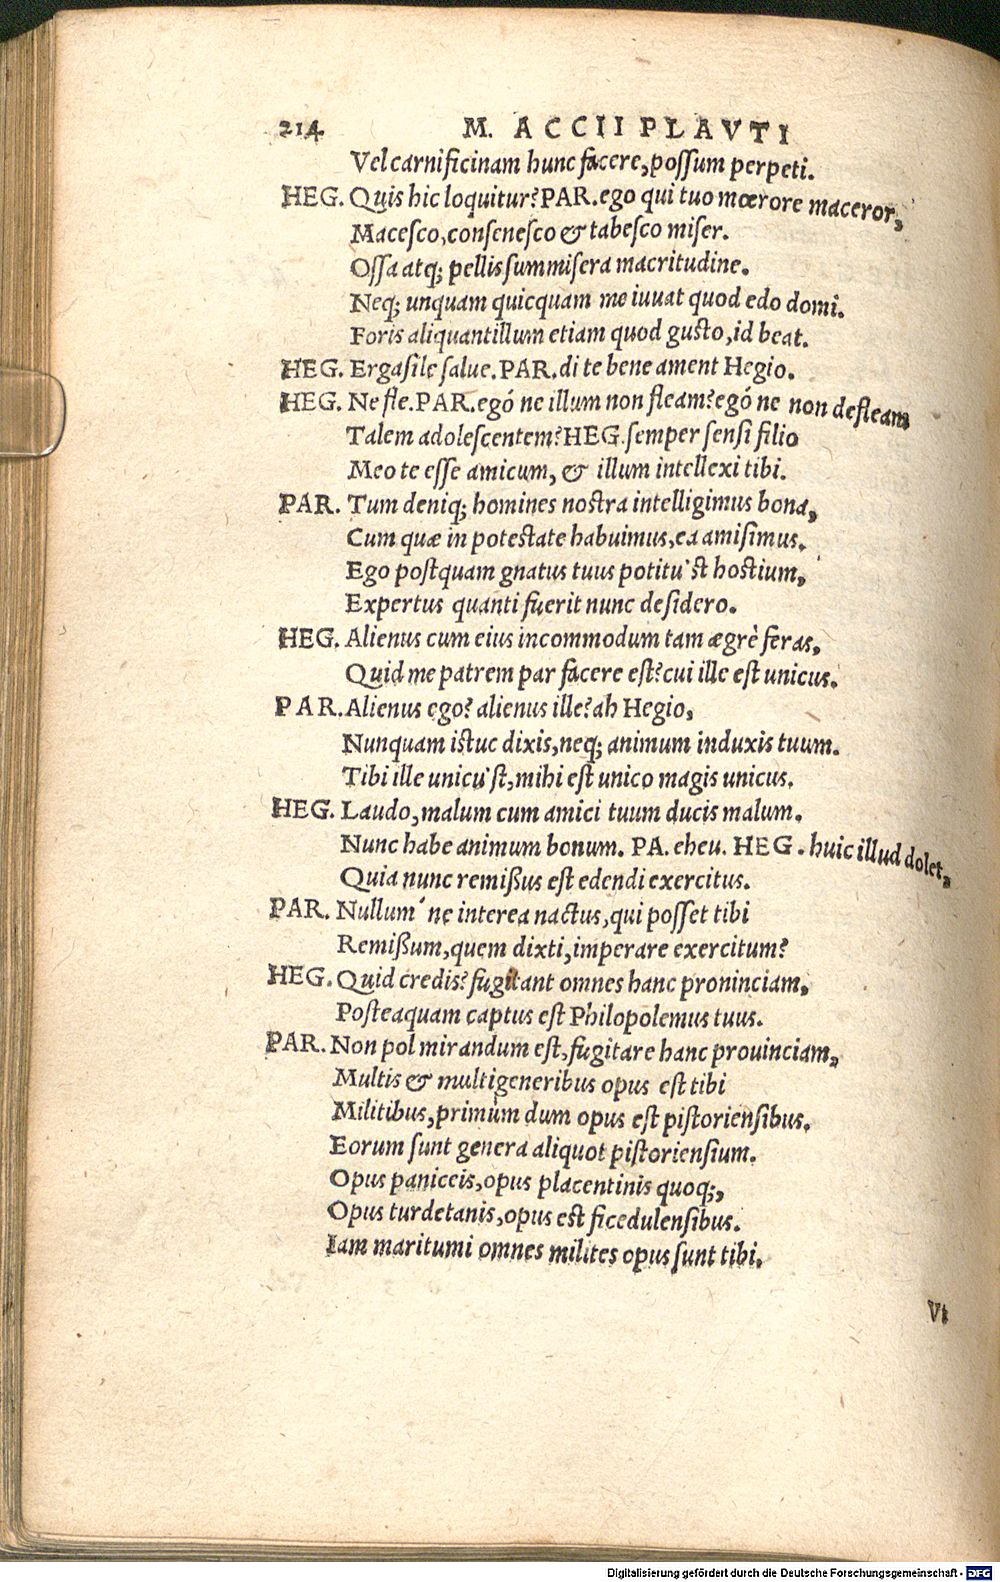 214 M. ACCII PLAVTI
Vel carnificinam hunc facere, possum perpeti.
HEG. Quis hic loquitur? PAR. ego qui tuo mœrore maceror,
Macesco, consenesco & tabesco miser.
Ossa atq; pellis sum misera macritudine.
Neq; unquam quicquam me iuuat quod edo domi.
Foris aliquantillum etiam quod gusto, id beat.
HEG. Ergasile salue. PAR. di te bene ament Hegio.
HEG. Ne fle. PAR. egó ne illum non fleam? egó ne non defleam
Talem adolescentem? HEG. semper sensi filio
Meo te esse amicum, & illum intellexi tibi.
PAR. Tum deniq; homines nostra intelligimus bona,
Cum quæ in potestate habuimus, ea amisimus.
Ego postquam gnatus tuus potitu'st hostium,
Expertus quanti fuerit nunc desidero.
HEG. Alienus cum eius incommodum tam ægrè feras,
Quid me patrem par facere est? cui ille est unicus.
PAR. Alienus ego? alienus ille? ah Hegio,
Nunquam istuc dixis, neq; animum induxis tuum.
Tibi ille unicu'st, mihi est unico magis unicus.
HEG. Laudo, malum cum amici tuum ducis malum.
Nunc habe animum bonum. PA. eheu. HEG. huic illud dolet,
Quia nunc remißus est edendi exercitus.
PAR. Nullum'ne interea nactus, qui posset tibi
Remißum, quem dixti, imperare exercitum?
HEG. Quid credis? fugitant omnes hanc proninciam,
Posteaquam captus est Philopolemus tuus.
PAR. Non pol mirandum est, fugitare hanc prouinciam,
Multis & multigeneribus opus est tibi
Militibus, primùm dum opus est pistoriensibus.
Eorum sunt genera aliquot pistoriensium.
Opus paniceis, opus placentinis quoq;,
Opus turdetanis, opus est ficedulensibus.
Iam maritumi omnes milites opus sunt tibi.
Vt
Digitalisierung gefördert durch die Deutsche Forschungsgemeinschaft - DFG